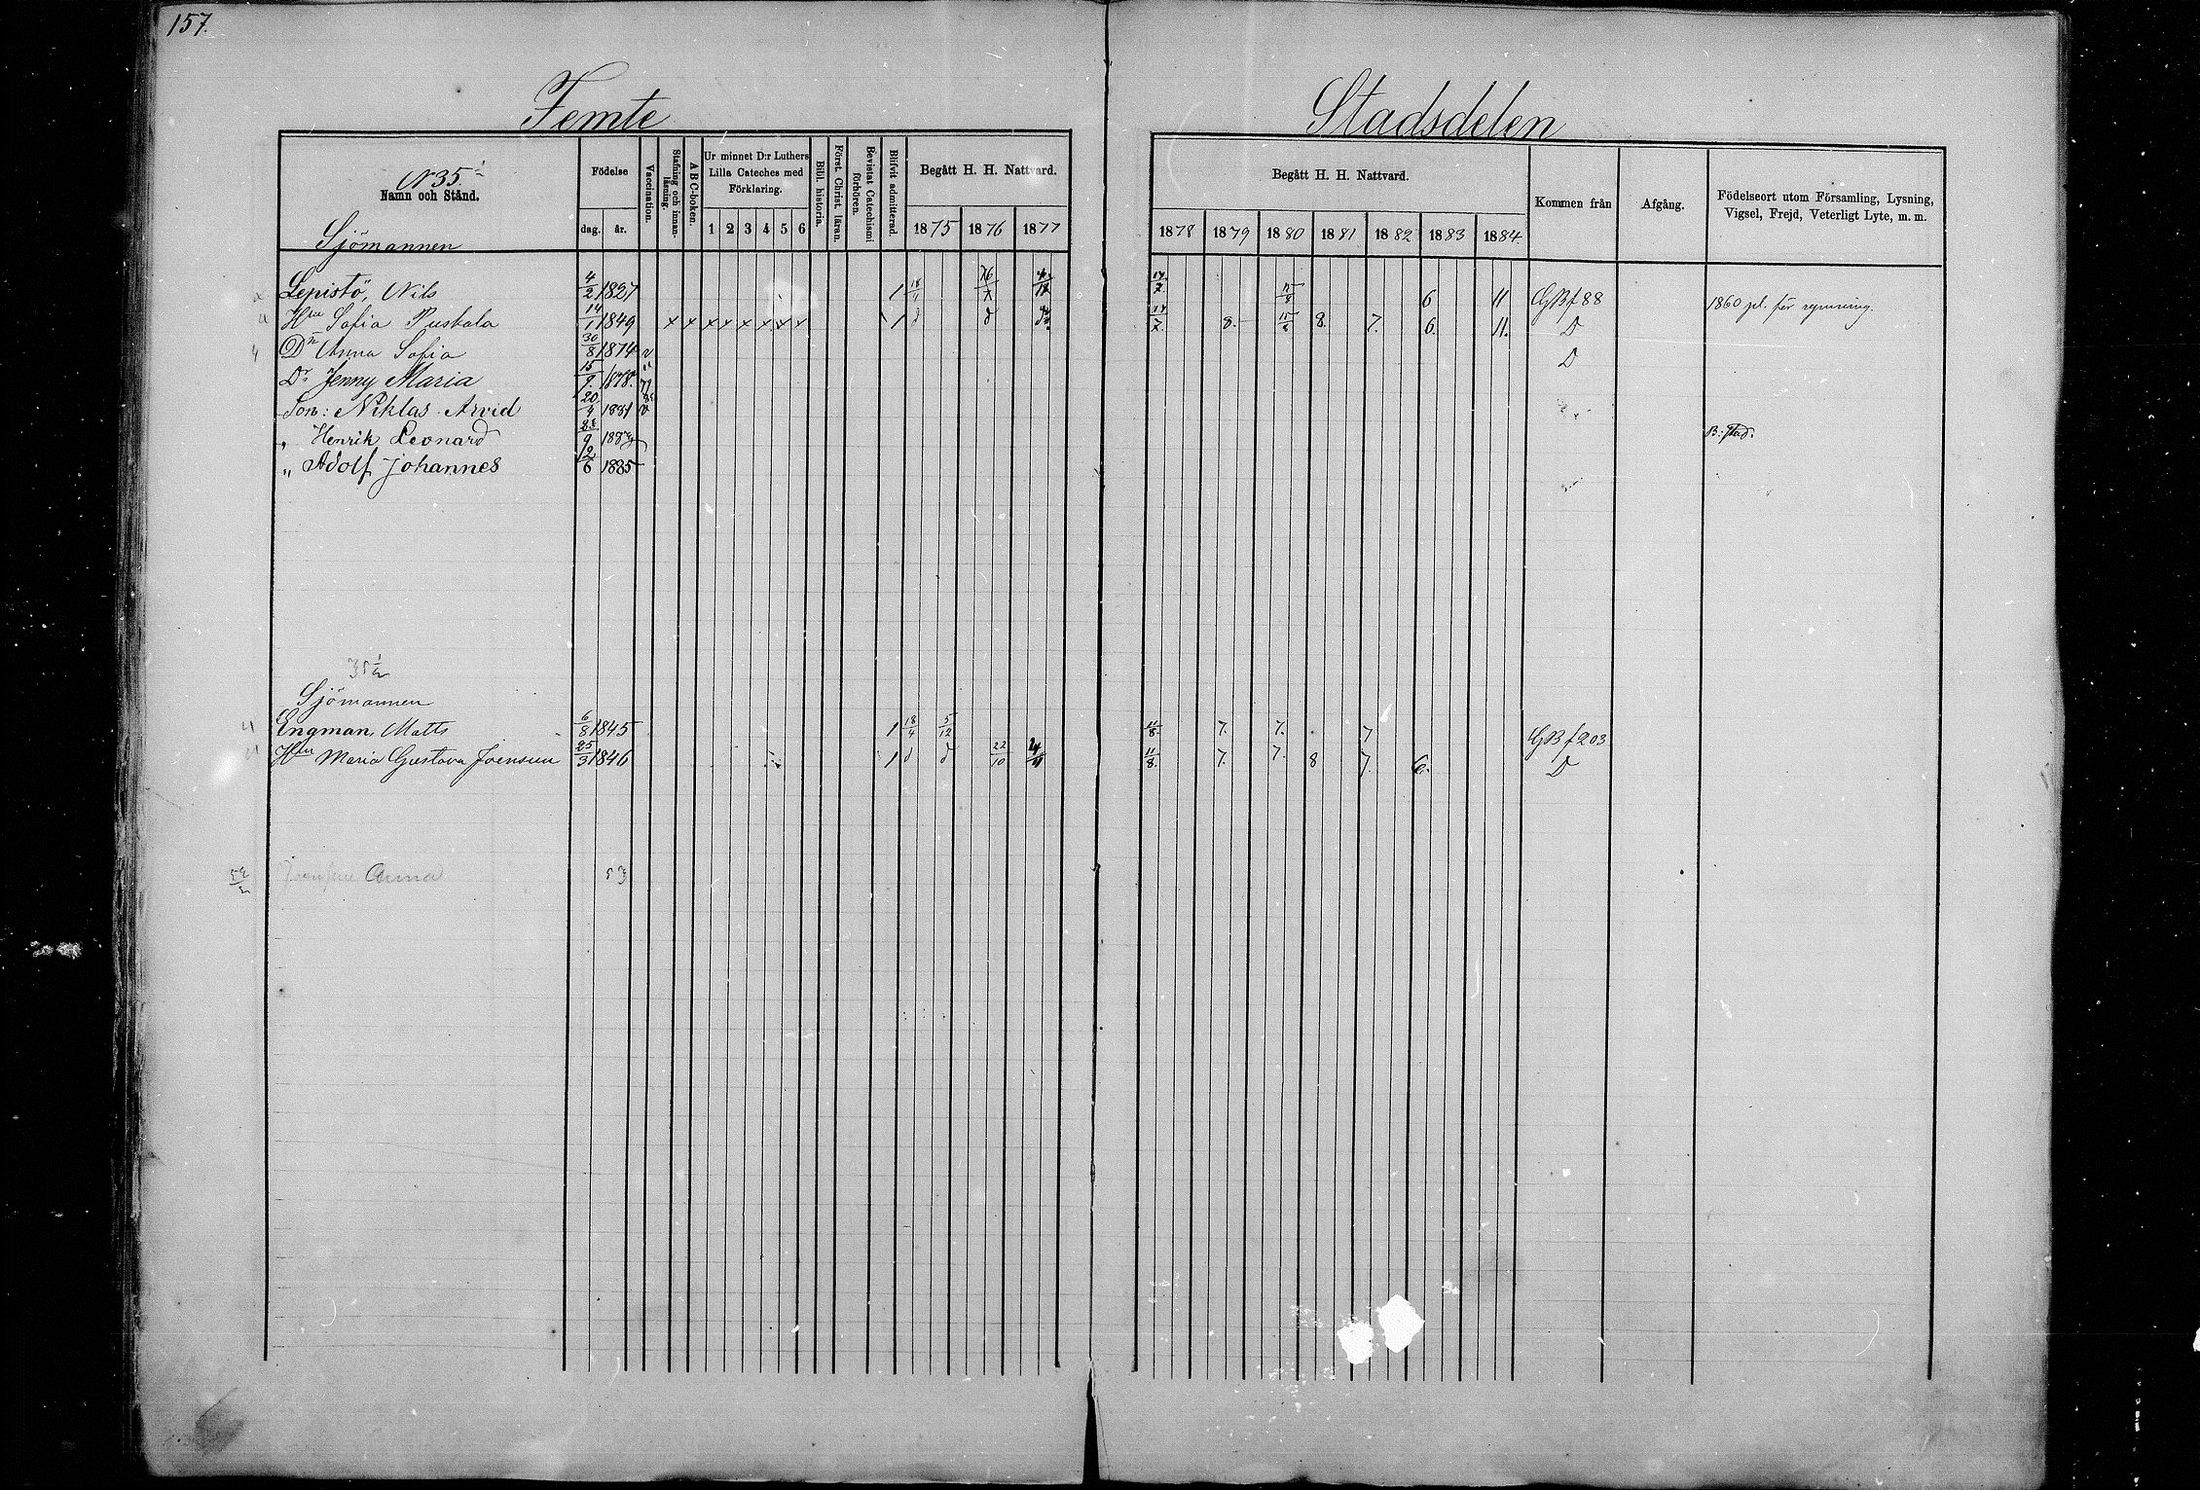 157.
Femte Stadsdelen
N 35.
Namn och Stånd.
Födelse
dag. år.
Vaccination.
Stafning och innanläsning.
A B C-boken.
Ur minnet D:r Luthers Lilla Cateches med Förklaring.
1 2 3 4 5 6
Bibl. historia.
Först. Christ. läran.
Bevistat Catechismi förhören.
Blifvit admitterad.
Begått H. H. Nattvard.
1875 1876 1877
Begått H. H. Nattvard.
1878 1879 1880 1881 1882 1883 1884
Kommen från
Afgång.
Födelseort utom Församling, Lysning, Vigsel, Frejd, Veterligt Lyte, m. m.
Sjömannen
Lepistö, Nils 4/2 1827 1 6 11 GB f 88 1860 pl. för rymning.
Hu Sofia Puskala 14/1 1849 x x x x x x x x 1 8. 8. 7. 6. 11. D
Dr Anna Sofia 30/8 1874 v D
Dr Jenny Maria 15/9 1878.
Son: Niklas Arvid 20/4 1881 v
„ Henrik Leonard 9 1883 B: stad.
„ Adolf Johannes 12/6 1885
35 1/2
Sjömannen
Engman, Matts 6/8 1845 1 18/4 5/12 11/8. 7. 7. 7 GB f 203
Hu Maria Gustava Joensuu 25/3 1846 1 d d 22/10 11/8. 7. 7. 8 7. 6. D
Anna 53